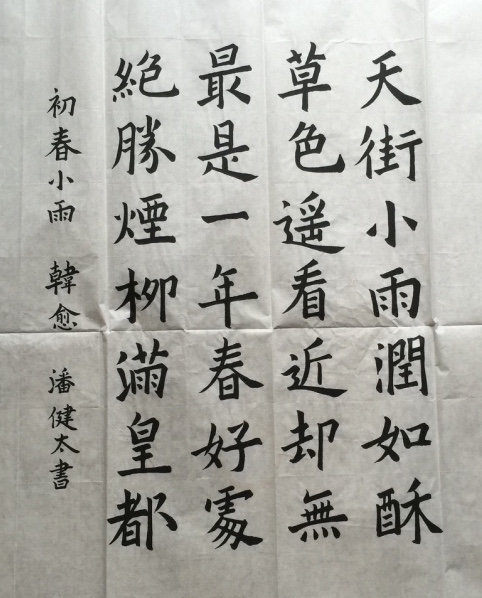 天街小雨潤如酥
草色遥看近却無
最是一年春好處
絕勝煙柳滿皇都
初春小雨 韓愈 潘健太書